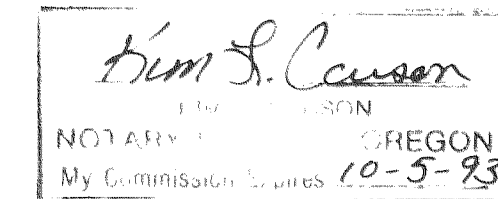 Kim L. Carson
SON
NOTARY OREGON
My Commission Expires 10-5-93